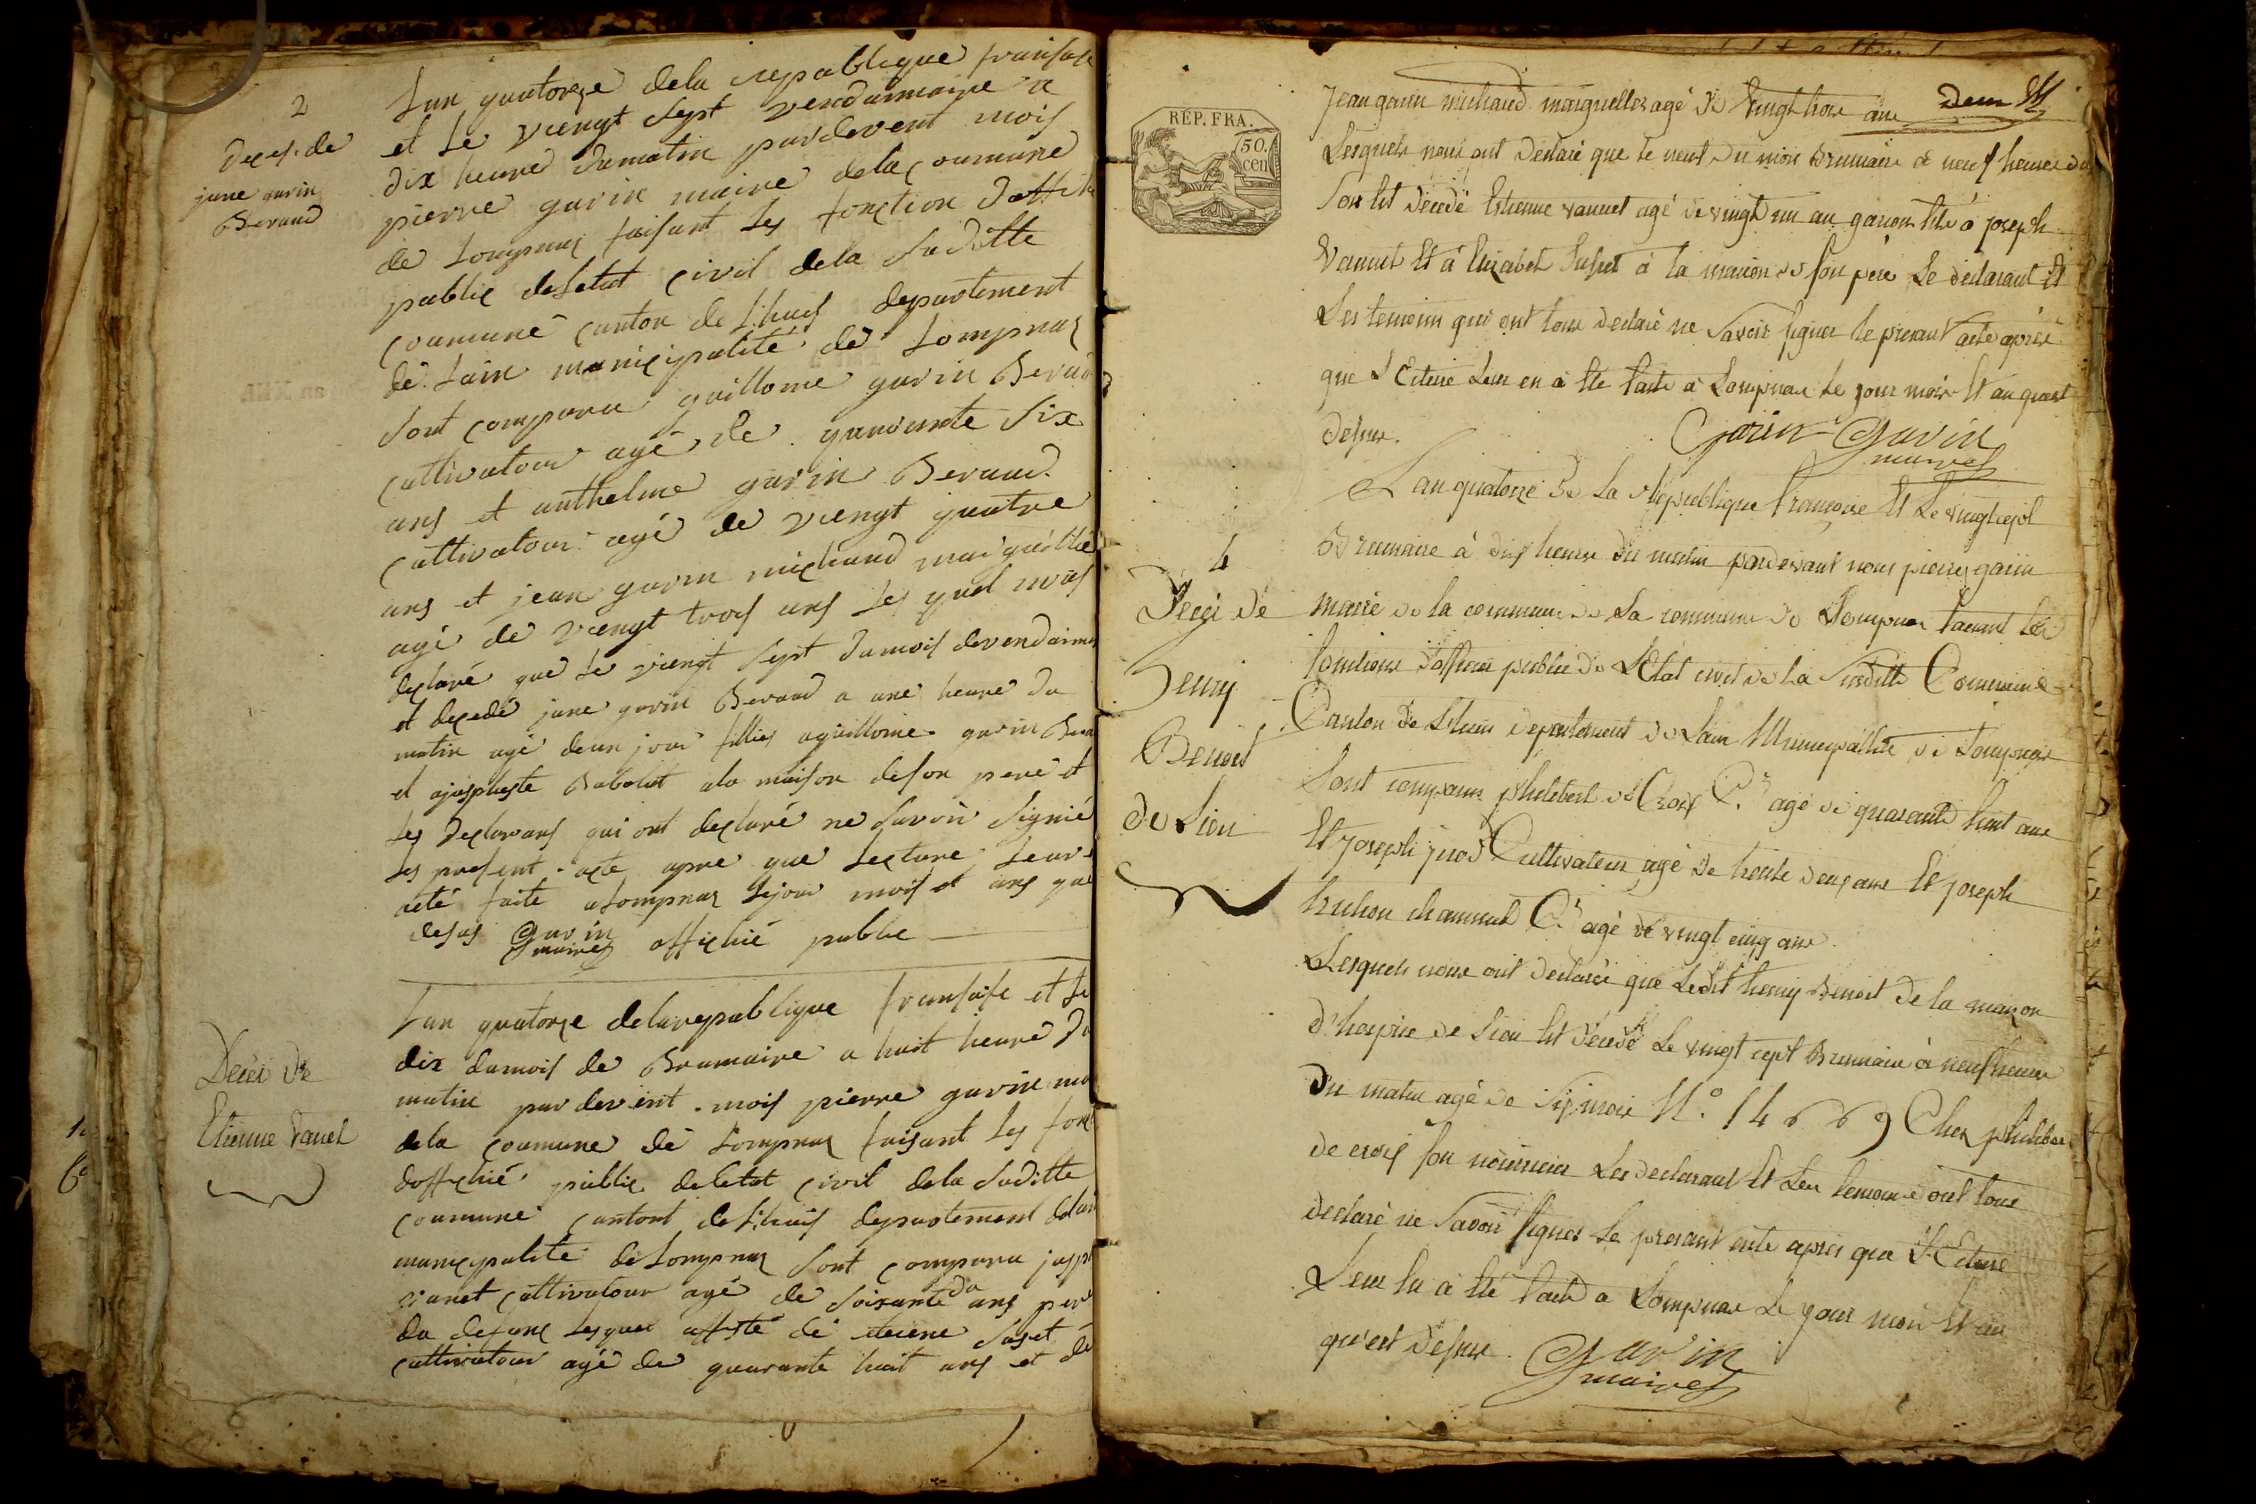 2
Deces de
june garin
Beraud
Lan quatorze dela republique fransaise
et le viengt sept vendaimaire a
dix heure dumatin pardevent mois
pierre garin maire dela coumune
de Lompnas faisant les fonction doffi
public deletat civil dela suditte
coumune canton de Lhuis departement
de Lain municipalité de Lompnas
sont comparu guillome garin Beraud
cultivatour agé de quarente six
ans et anthelme garin Beraud
cultivatour agé de viengt quatre
ans et jean garin michaud marguillie
agé de viengt trois ans les quel mois
declaré que le viengt sept dumois devendaimai
et decedé june garin Beraud a une heure du
matin agé deun jour fillies aguillome garin Bera
et ajosphaste Babolat ala maison deson peré et
les declarans qui ont declaré ne savoir signié
les present acte apre que lecture leur
aeté faite aLompnas lejour mois et ans que
desus Garin
maire officié public
Decéi de
Etienne Vanet
Lan quatorze delarepublique fransaise et le
dix dumois de Brumaire a huit heure du
matin par devent mois pierre garin ma
dela coumune de Lompnas faisant les fonc
dofficié public deletat civil dela suditte
coumune cantont de Lhuis departement delain
municipalité de Lompnas sont comparu jospe
vanet cultivatour agé de soixante du ans pere
du defunt lesquel assisté de etiene Suset
cultivatour agé de quarante huit ans et de
RÉP. FRA.
50.
cen
Jean garin michaud marguellier agé de vingt trois ans deux M
Lesquels nous ont déclaré que le neuf du mois Brumaire à neuf heures du
soir Est décedé Estienne vannet agé de vingt un an garcon filé à joseph
Vannet Et à Elizabet Suset à la maison de son père Le déclarant Et
Les temoins qui ont tous declaré ne savoir signer le présent acte après
que L'Ecture Leur en à été faite à Lompnas Le jour mois Et an quest
desus.
Garin Garin
maire
L'an quatorze de La République francoise Et Le vingt sept
Brumaire à dix heures du matin pardevant nous pierre garin
maire de la commune de La commune de Lompnas faisant les
fonctions d'officier public de L'Etat civil de La susditte Commune
Canton de Lhuis departement de Lain Municipallité de Lompnas
Sont comparus philibert de Croix C.r agé de quarante huit ans
Et joseph juod Cultivateur agé de trente deux ans Et joseph
truchon chammet C.r agé de vingt cinq ans.
Lesquels nous ont déclarée que Ledit henry Benoit de la maison
d'hospice de Lion Est décedé Le vingt sept Brumaire à neuf heures
du matin agé de six mois N.o 14669 Chez philibert
de croix son nourricier Les declarant Et Les temoins ont tous
declaré ne savoir signer Le présent acte après que L'Ecture
Leur En à été faite a Lompnas Le jour mois Et an
qu'est desus. Garin
maire
4
Deçéi de
henry
Benoit
de Lion